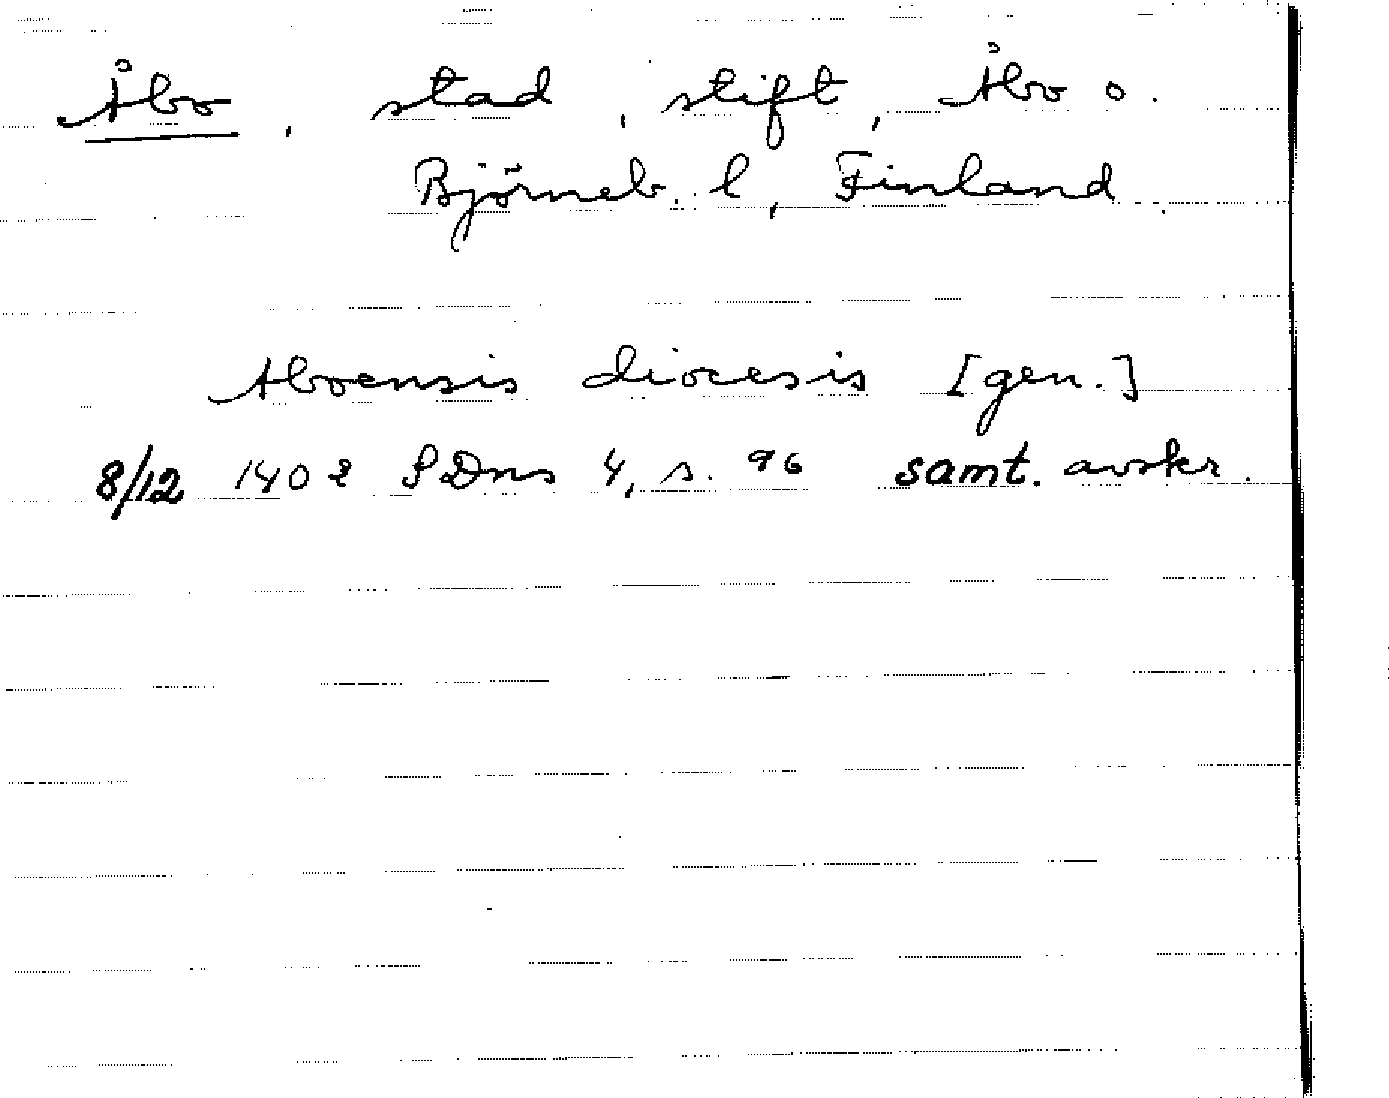 Åbo, stad, stift, Åbo o.
Björneb. l, Finland
Aboensis diocesis [gen.]
8/12 1402 SDns 4, s. 96 samt. avskr.